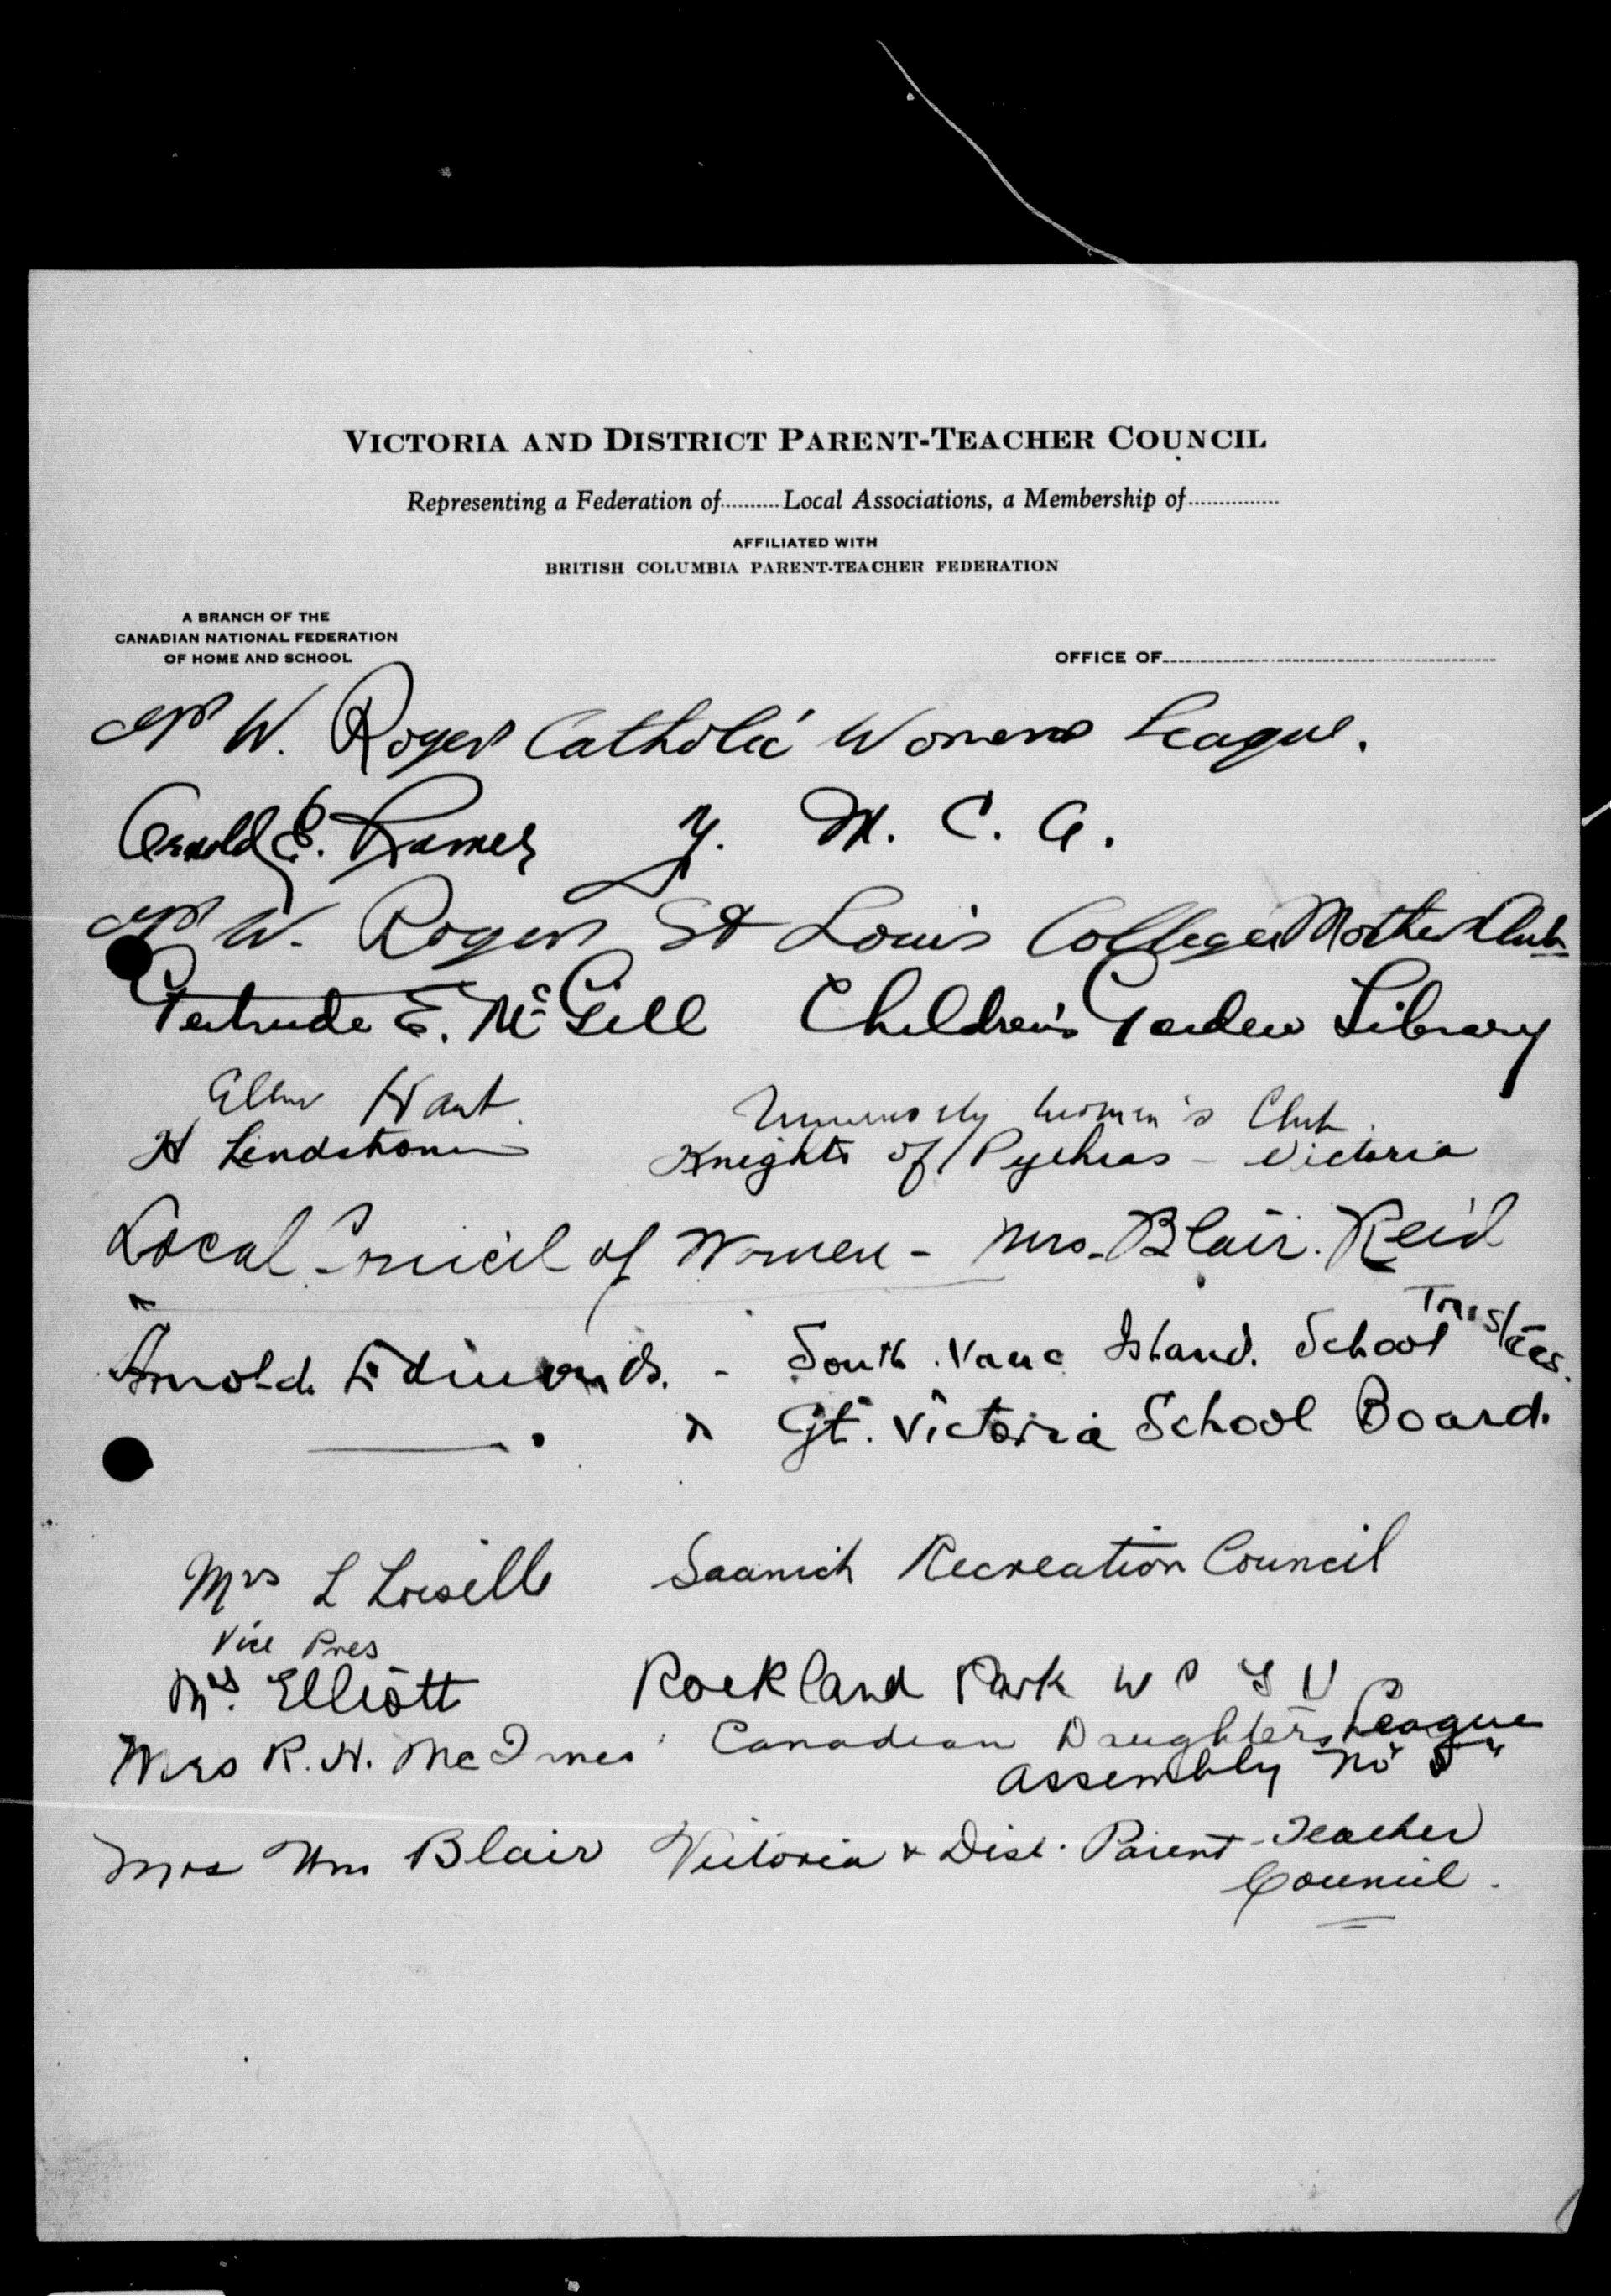 VICTORIA AND DISTRICT PARENT-TEACHER COUNCIL
Representing a Federation of..........Local Associations, a Membership of...............
AFFILIATED WITH
BRITISH COLUMBIA PARENT-TEACHER FEDERATION
A BRANCH OF THE
CANADIAN NATIONAL FEDERATION
OF HOME AND SCHOOL
OFFICE OF
Mrs W. Rogers Catholic Womens League.
Arnold E. Y. M. C. A.
Mrs W. Rogers St Louis College Mothers Club
Gertrude E. McGill Children's Garden Library
Ellen Hart. University Women's Club.
H Lindstrom Knights of Pythias - Victoria
Local Council of Women - Mrs. Blair. Reid
Arnold Edmonds. - South. Vanc Island. School Trustees.
" Gt. Victoria School Board.
Mrs L Loiselle Saanich Recreation Council
Vice Pres
Mrs. Elliott Rockland Park W C T U
Mrs R. H. McInnes Canadian Daughters League
Assembly No
Mrs Wm Blair Victoria & Dist. Parent-Teacher
Council.